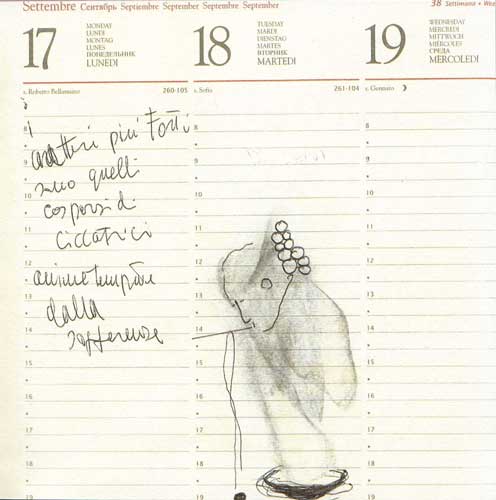 Settembre Сентябрь Septiembre September Septembre September
38 Settimana • Wee
17
MONDAY
LUNDI
MONTAG
LUNES
ПОНЕДЕЛЬНИК
LUNEDI
18
TUESDAY
MARDI
DIENSTAG
MARTES
ВТОРНИК
MARTEDI
19
WEDNESDAY
MERCREDI
MITTWOCH
MIÉRCOLES
СРЕДА
MERCOLEDI
s. Roberto Bellarmino 260-105
s. Sofia 261-104
s. Gennaro
i
caratteri più forti
sono quelli
cosparsi di
ciccatrici
anime temprate
dalla
sofferenza
8
9
10
11
12
13
14
15
16
17
18
19
8
9
10
11
12
13
14
15
16
17
18
19
8
9
10
11
12
13
14
15
16
17
18
19